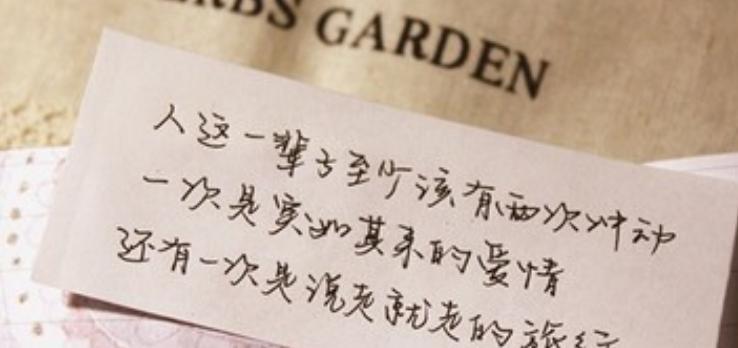 ERBS GARDEN
人这一辈子至少该有两次冲动
一次是突如其来的爱情
还有一次是说走就走的旅行